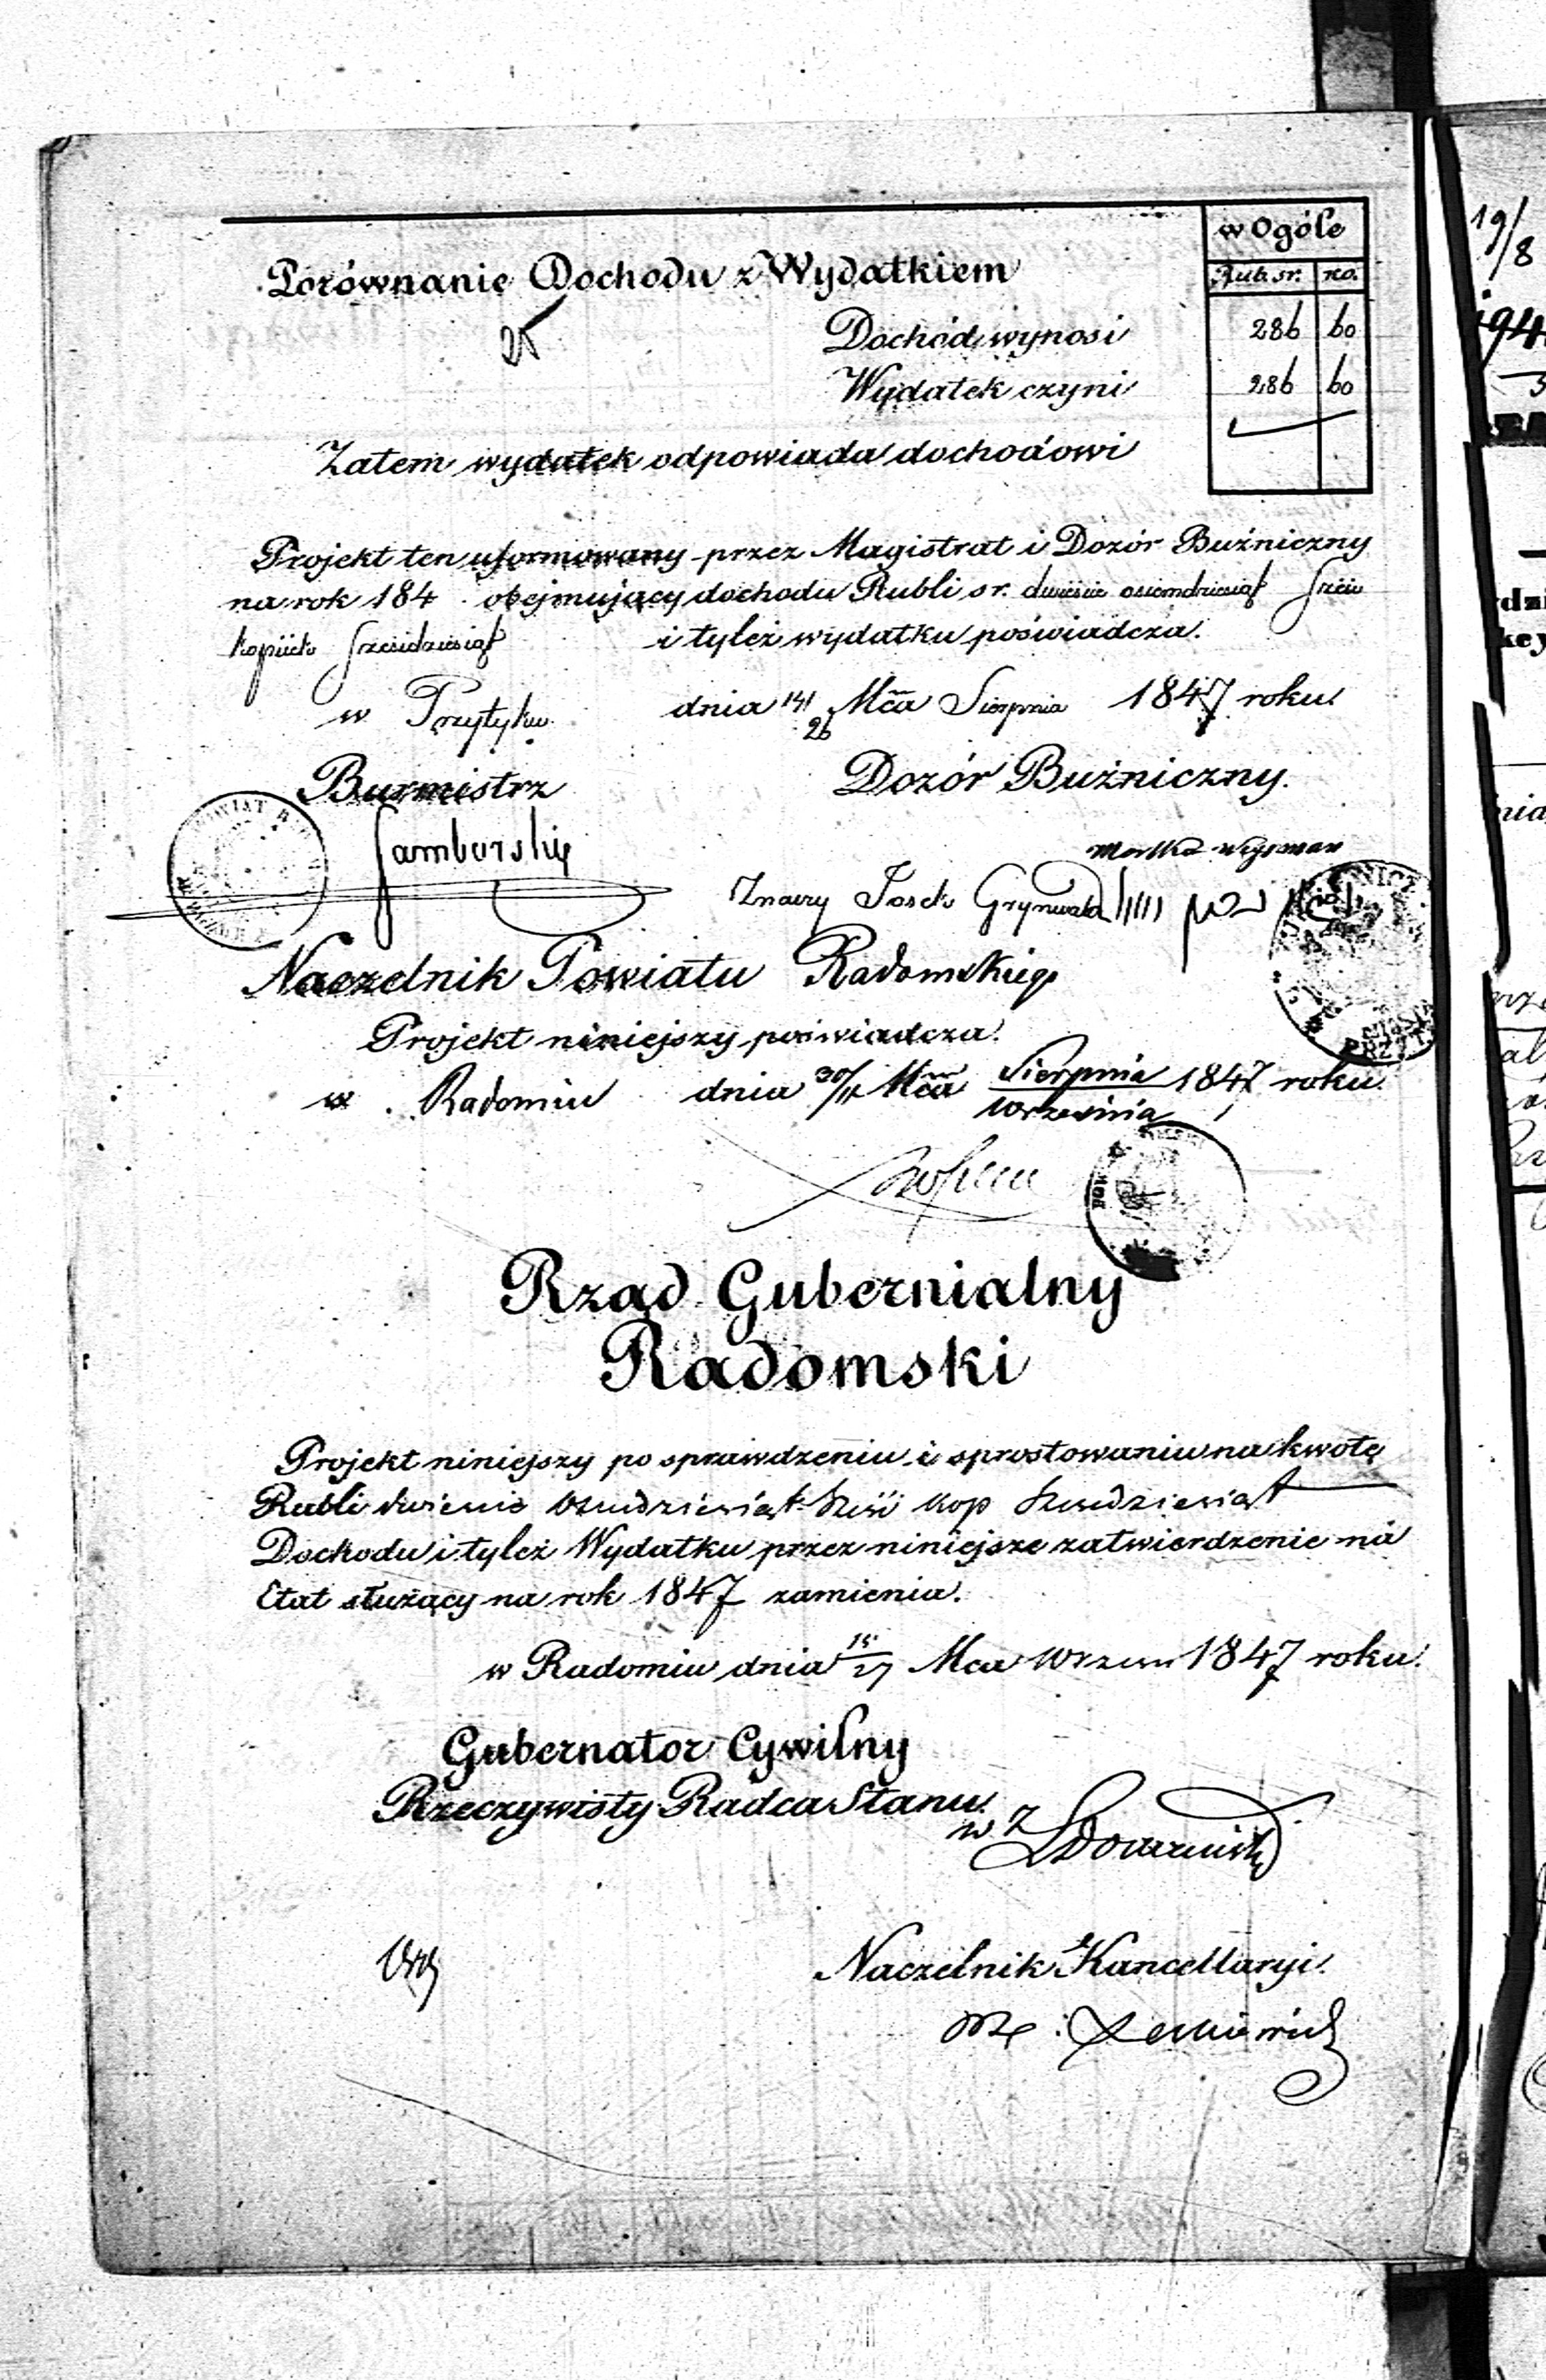 w Ogóle
Rub. sr. ko.
Porównanie Dochodu z Wydatkiem
25
Dochód wynosi 286 60
Wydatek czyni 286 60
Zatem wydatek odpowiada dochodowi
Projekt ten uformowany przez Magistrat i Dozór Buźniczny
na rok 184 obejmujący dochodu Rubli sr. dwieście osiemdziesiąt sześć
kopiiek sześćdziesiąt i tyleż wydatku poświadcza.
w Przytyku dnia 14/26 Mca Sierpnia 1847 roku.
Burmistrz Dozór Buźniczny.
Jamborski
Moszka Wejsman
Znaczy Josek Grynwald
Naczelnik Powiatu Radomskiego
Projekt niniejszy poświadcza.
w Radomiu dnia 30/11 Mca Sierpnia/Września 1847 roku
Rząd Gubernialny
Radomski
Projekt niniejszy po sprawdzeniu i sprostowaniu na kwotę
Rubli dwieście Osmdziesiąt Sześć kop Sześdziesiąt
Dochodu i tyleż Wydatku przez niniejsze zatwierdzenie na
Etat służący na rok 1847 zamienia.
w Radomiu dnia 15/27 Mca Wrześn 1847 roku.
Gubernator Cywilny
Rzeczywisty Radca Stanu.
w Z
Naczelnik Kancellaryi.
19/8